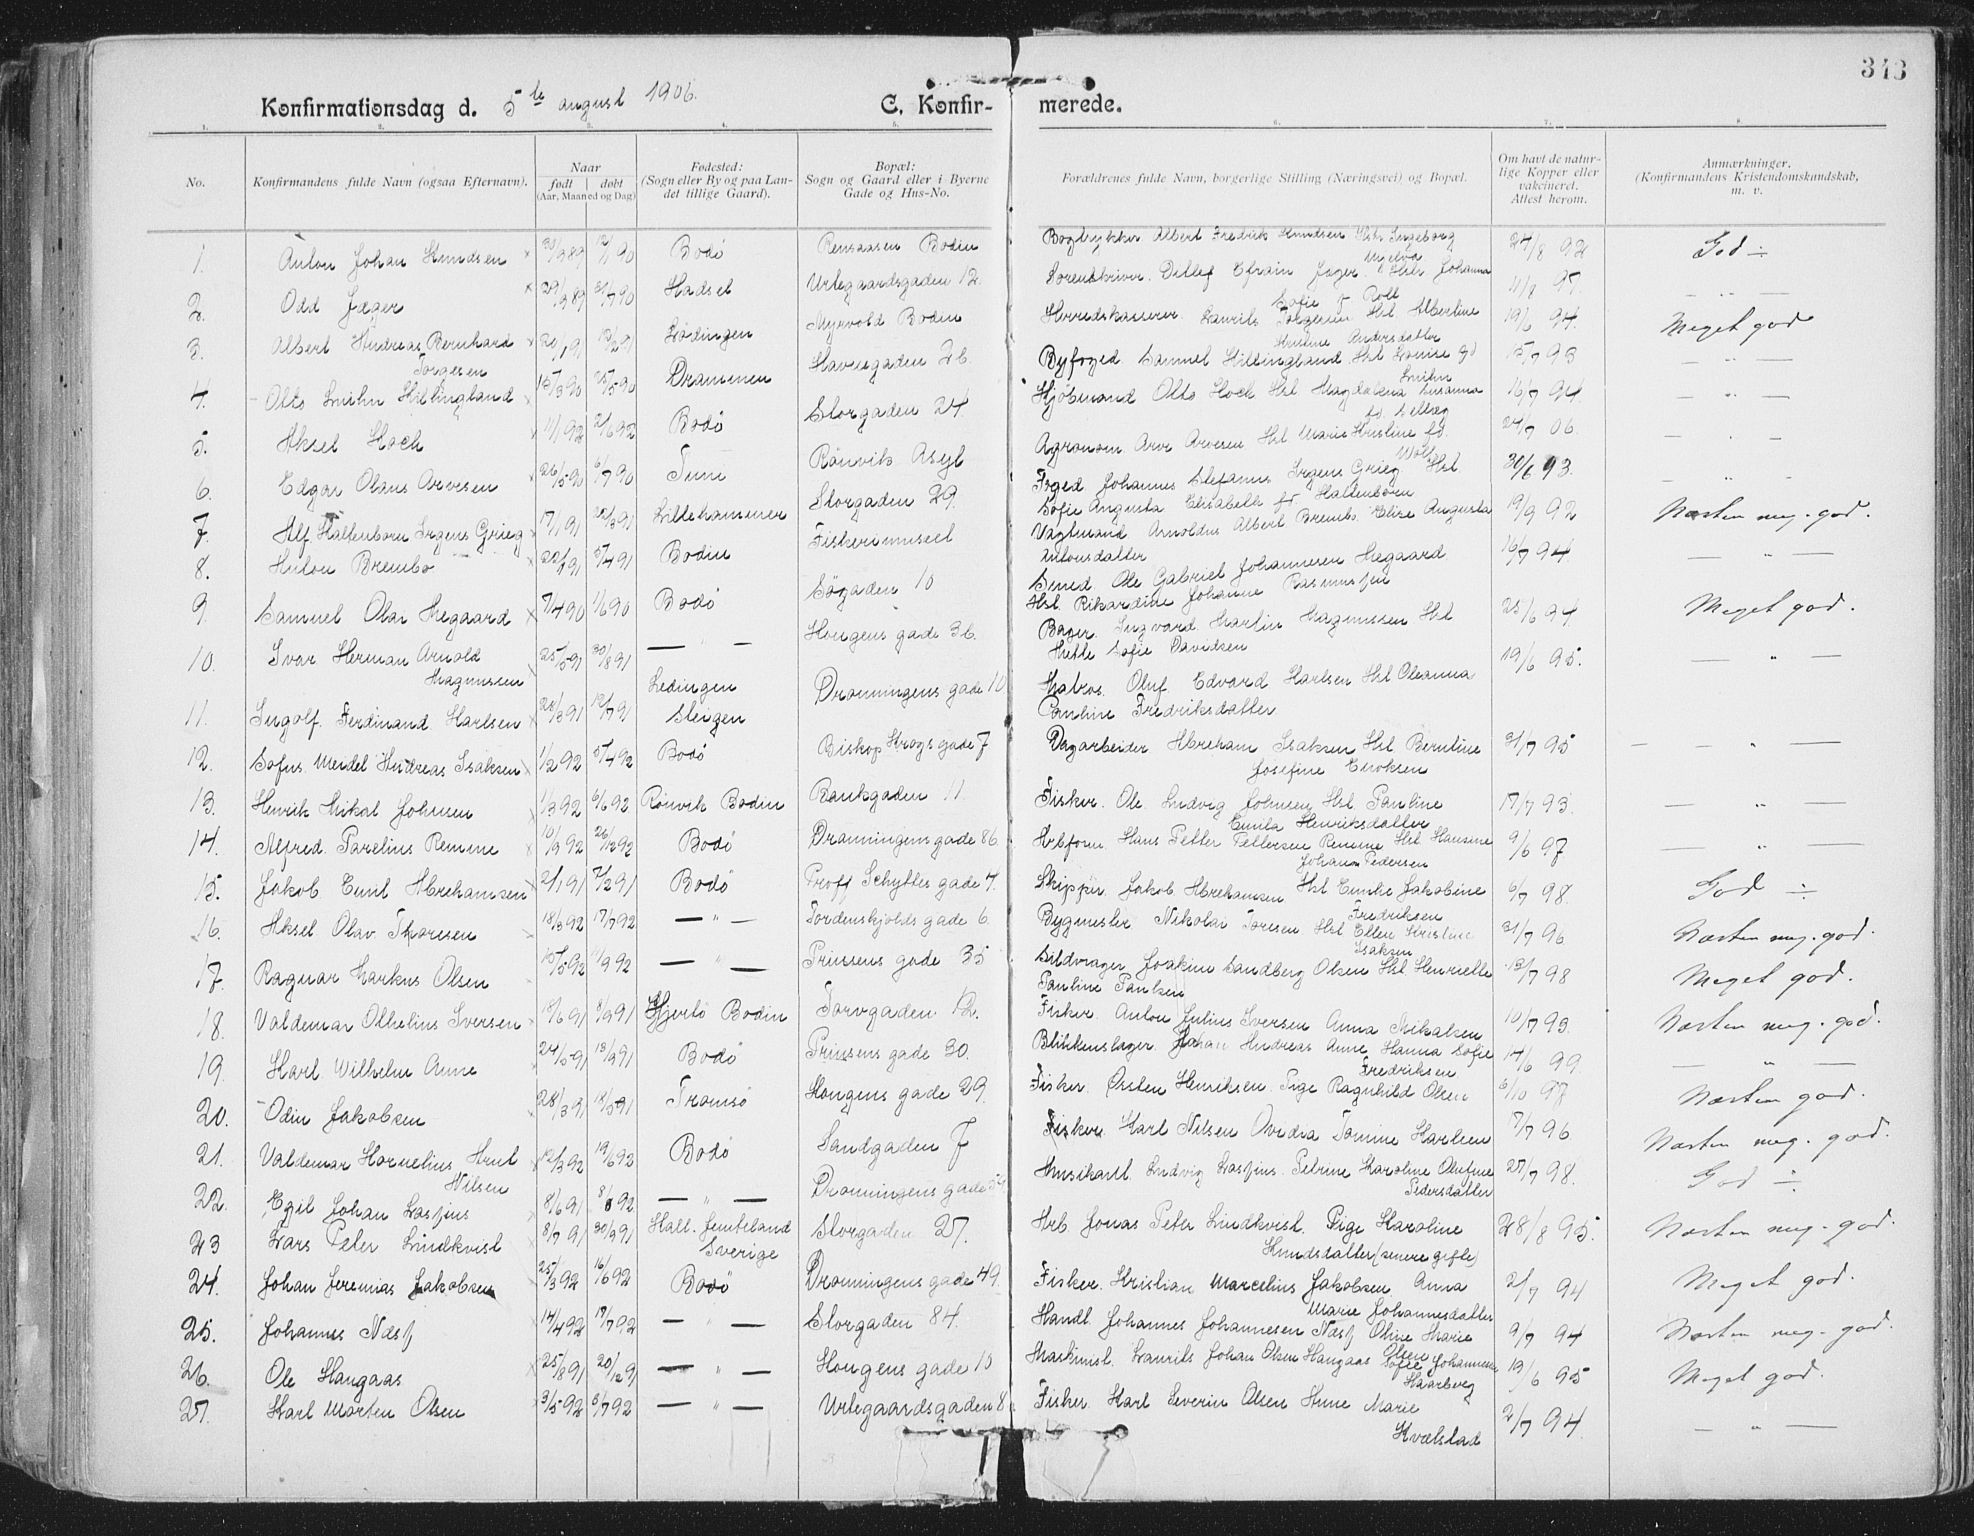 343
Konfirmationsdag d. 5te august 1906. C. Konfirmerede.
1. 2. 3. 4. 5. 6. 7. 8.
No. Konfirmandens fulde Navn (ogsaa Efternavn). Naar født døbt (Aar, Maaned og Dag) Fødested: (Sogn eller By og paa Landet tillige Gaard). Bopæl: Sogn og Gaard eller i Byerne Gade og Hus-No. Forældrenes fulde Navn, borgerlige Stilling (Næringsvei) og Bopæl. Om havt de naturlige Kopper eller vakcineret. Attest herom. Anmærkninger. (Konfirmandens Kristendomskundskab, m. v.
1. Anton Johan Knudsen Bodø Rensaasen Bodin Bogtrykker Albert Fredrik Knudsen Hst Ingeborg 24/8 92 God ÷
2. Odd Jæger 29/9 89 Hadsel Urtegaardsgaden 12. Sorenskriver Ditlef Efraim Jæger Hst Johanna Sofie f. Roll 11/8 95. — " —
3. Albert Andreas Bernhard Torgersen 20/1 91 15/2 91 Lødingen Myrvold Bodin Herredskasserer Laurits Torgersen Hst Albertine Kristine Andersdatter 19/6 94. Meget god
4. Otto Smihn Killingland 15/3 90 25/5 90 Drammen Havnegaden 26. Byfoged Samuel Killingland Hst Louise fd Smihn 15/7 93 — " —
5. Aksel Koch 11/1 92 21/6 92 Bodø Storgaden 24 Kjøbmand Otto Koch Hst Magdalena Susanna 16/7 94 — " —
6. Edgar Olaus Arvesen 26/5 90 6/7 90 Tune Rønvik Asyl Agronom Arve Arvesen Hst Marie Kristine fd. Wolf 24/7 06. — " —
7. Alf Hallenborn Irgens Grieg 17/1 91 22/3 91 Lillehammer Storgaden 29. Foged Johannes Stefanus Irgens Grieg Hst Sofie Augusta Elisabeth fd Hallenborn 30/6 93. — " —
8. Anton Brembo 22/1 91 5/4 91 Bodin Fiskerimuseet Vagtmand Arnoldus Albert Brembo. Elise Augusta Antonsdatter 19/9 92 Næsten meg. god.
9. Samuel Olai Hegaard 7/4 90 1/6 90 Bodø Søgaden 10 Smed Ole Gabriel Johannesen Hegaard Hst. Rikardine Johanne Rasmussen 16/7 94. — " —
10. Ivar Herman Arnold Magnussen 25/5 91 30/8 91 — " — Kongens gade 36. Bager Ingvard Martin Magnussen Hst Mette Sofie Davidsen 25/6 94 Meget god.
11. Ingolf Ferdinand Karlsen 28/3 91 12/7 91 Ledingen Steigen Dronningens gade 10 Matros. Oluf Edvard Karlsen Hst Oleanna Pauline Fredriksdatter 19/6 95. — " —
12. Sofus Meidel Andreas Isaksen 1/2 92 5/4 92 Bodø Biskop Krogs gade 7 Dagarbeider Abreham Isaksen Hst Berntine Josefine Enoksen 31/7 95 — " —
13. Henrik Mikal Johnsen 1/3 92 6/6 92 Rønvik Bodin Bankgaden 11 Fisker. Ole Ludvig Johnsen Hst Pauline Emila Henriksdatter 17/7 93. — " —
14. Alfred Parelius Remme 10/9 92 26/12 92 Bodø Dronningens gade 86. Arbform. Hans Petter Pettersen Remme Hst Hansine Johan Pedersen 9/6 97 — " —
15. Jakob Emil Abrehamsen 2/1 91 7/2 91 Bodø Proff Schyttes gade 4. Skipper Jakob Abrehamsen Hst Emke Jakobine Fredriksen 6/7 98. God ÷
16. Aksel Olav Thoresen 18/3 92 17/7 92 — " — Tordenskjolds gade 6 Bygmester Nikolai Toresen Hst Ellen Kristine Isaksen 31/7 96. Næsten meg. god.
17. Ragnar Markus Olsen 15/5 92 11/9 92 — " — Prinsens gade 35 Sildvrager Joakim Sandberg Olsen Hst Henriette Pauline Paulsen 13/7 98 Meget god.
18. Valdemar Othelius Iversen 18/6 91 8/9 91 Hjertø Bodin Torvgaden 12. Fisker. Anton Julius Iversen Anna Mikalsen 10/7 93. Næsten meg. god.
19. Karl Wilhelm Anne 24/5 91 13/9 91 Bodø Prinsens gade 30. Blikkenslager. Johan Andreas Anne Hanna Sofie Fredriksen 14/6 99. — " —
20. Odin Jakobsen 28/3 91 18/5 91 Tromsø Kongens gade 29. Fisker.Ørsten Henriksen Pige Ragnhild Olsen 6/10 97 Næsten god.
21. Valdemar Kornelius Arnt Nilsen 12/3 92 19/6 92 Bodø Sandgaden 7 Fisker Karl Nilsen Ovidia Tomine Karlsen 7/7 96. Næsten meg. god.
22. Egil Johan Rasfus 8/6 91 — " — Dronningens gade Musikant Ludvig Rasfus. Petrine Karoline Olufine Pedersdatter 27/7 98. God ÷
23 Lars Peter Lindkvist 8/7 91 30/9 91 Hall. Jemteland Sverige Storgaden 27. Arb Jonas Peter Lindkvist. Pige Karoline Knudsdatter (senere gifte) 28/8 95. Næsten meg. god.
24. Johan Jeremias Jakobsen 25/3 92 16/6 92 Bodø Dronningens gade 49. Fisker. Kristian Marcelius Jakobsen Anna Marie Johannesdatter 2/7 94 Meget god.
25. Johannes Næss 14/4 92 17/7 92 — " — Storgaden 84. Handl. Johannes Johannesen Næss Oline Marie Olsen 9/7 94 Næsten meg. god.
26. Ole Haugaas 25/8 91 20/12 91 — " — Kongens gade 10 Maskinist. Laurits Johan Olsen Haugaas Sofie Johannesen Haarberg 19/6 95 Meget god.
27. Karl Morten Olsen 3/5 92 3/7 92 — " — Urtegaardsgaden 8 Fisker Karl Severin Olsen Anne Marie Kvælstad 2/7 94. — " —